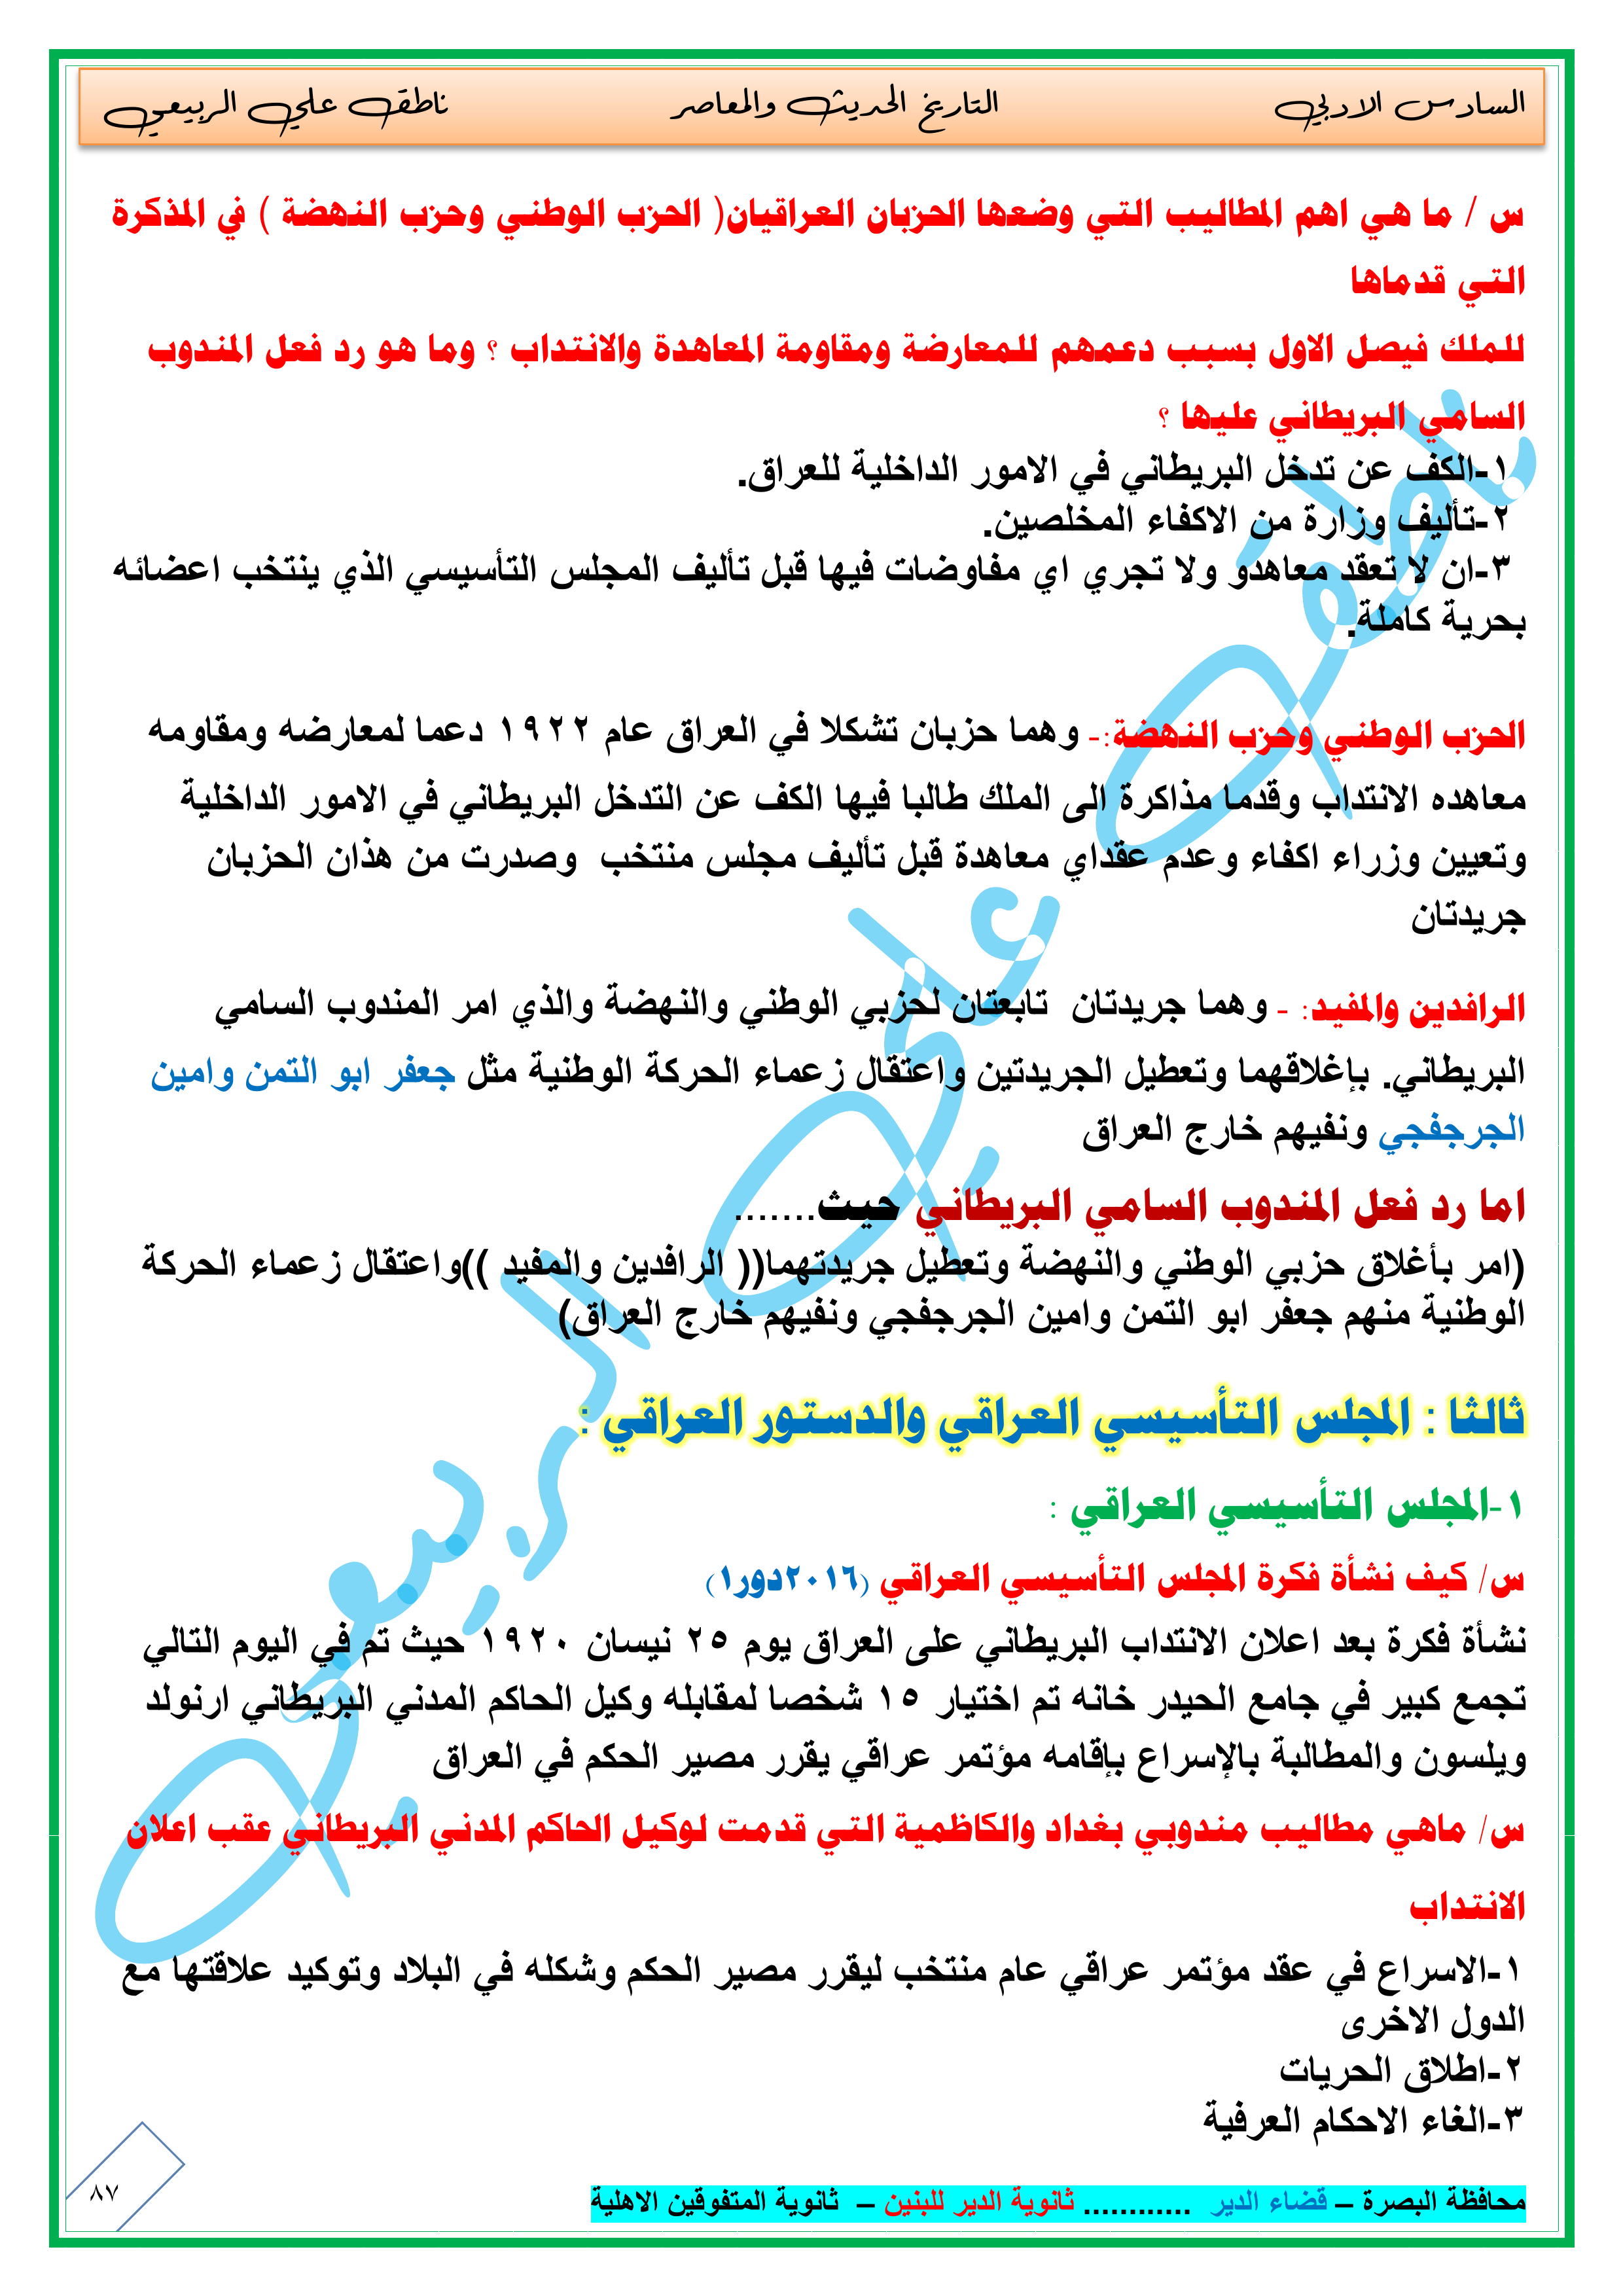 السادس الادبي التاريخ الحديث والمعاصر ناطق علي الربيعي
س / ما هي اهم المطاليب التي وضعها الحزبان العراقيان( الحزب الوطني وحزب النهضة ) في المذكرة
التي قدماها
للملك فيصل الاول بسبب دعمهم للمعارضة ومقاومة المعاهدة والانتداب ؟ وما هو رد فعل المندوب
السامي البريطاني عليها ؟
١-الكف عن تدخل البريطاني في الامور الداخلية للعراق.
٢-تأليف وزارة من الاكفاء المخلصين.
٣-ان لا تعقد معاهدو ولا تجري اي مفاوضات فيها قبل تأليف المجلس التأسيسي الذي ينتخب اعضائه
بحرية كاملة.
الحزب الوطني وحزب النهضة:- وهما حزبان تشكلا في العراق عام ١٩٢٢ دعما لمعارضه ومقاومه
معاهده الانتداب وقدما مذاكرة الى الملك طالبا فيها الكف عن التدخل البريطاني في الامور الداخلية
وتعيين وزراء اكفاء وعدم عقداي معاهدة قبل تأليف مجلس منتخب وصدرت من هذان الحزبان
جريدتان
الرافدين والمفيد: - وهما جريدتان تابعتان لحزبي الوطني والنهضة والذي امر المندوب السامي
البريطاني. بإغلاقهما وتعطيل الجريدتين واعتقال زعماء الحركة الوطنية مثل جعفر ابو التمن وامين
الجرجفجي ونفيهم خارج العراق
اما رد فعل المندوب السامي البريطاني حيث.......
(امر بأغلاق حزبي الوطني والنهضة وتعطيل جريدتهما(( الرافدين والمفيد ))واعتقال زعماء الحركة
الوطنية منهم جعفر ابو التمن وامين الجرجفجي ونفيهم خارج العراق)
ثالثا : المجلس التأسيسي العراقي والدستور العراقي :
١-المجلس التأسيسي العراقي :
س/ كيف نشأة فكرة المجلس التأسيسي العراقي (٢٠١٦دور١)
نشأة فكرة بعد اعلان الانتداب البريطاني على العراق يوم ٢٥ نيسان ١٩٢٠ حيث تم في اليوم التالي
تجمع كبير في جامع الحيدر خانه تم اختيار ١٥ شخصا لمقابله وكيل الحاكم المدني البريطاني ارنولد
ويلسون والمطالبة بالإسراع بإقامه مؤتمر عراقي يقرر مصير الحكم في العراق
س/ ماهي مطاليب مندوبي بغداد والكاظمية التي قدمت لوكيل الحاكم المدني البريطاني عقب اعلان
الانتداب
١-الاسراع في عقد مؤتمر عراقي عام منتخب ليقرر مصير الحكم وشكله في البلاد وتوكيد علاقتها مع
الدول الاخرى
٢-اطلاق الحريات
٣-الغاء الاحكام العرفية
محافظة البصرة – قضاء الدير ............ ثانوية الدير للبنين – ثانوية المتفوقين الاهلية
٨٧
ناطق علي الربيعي